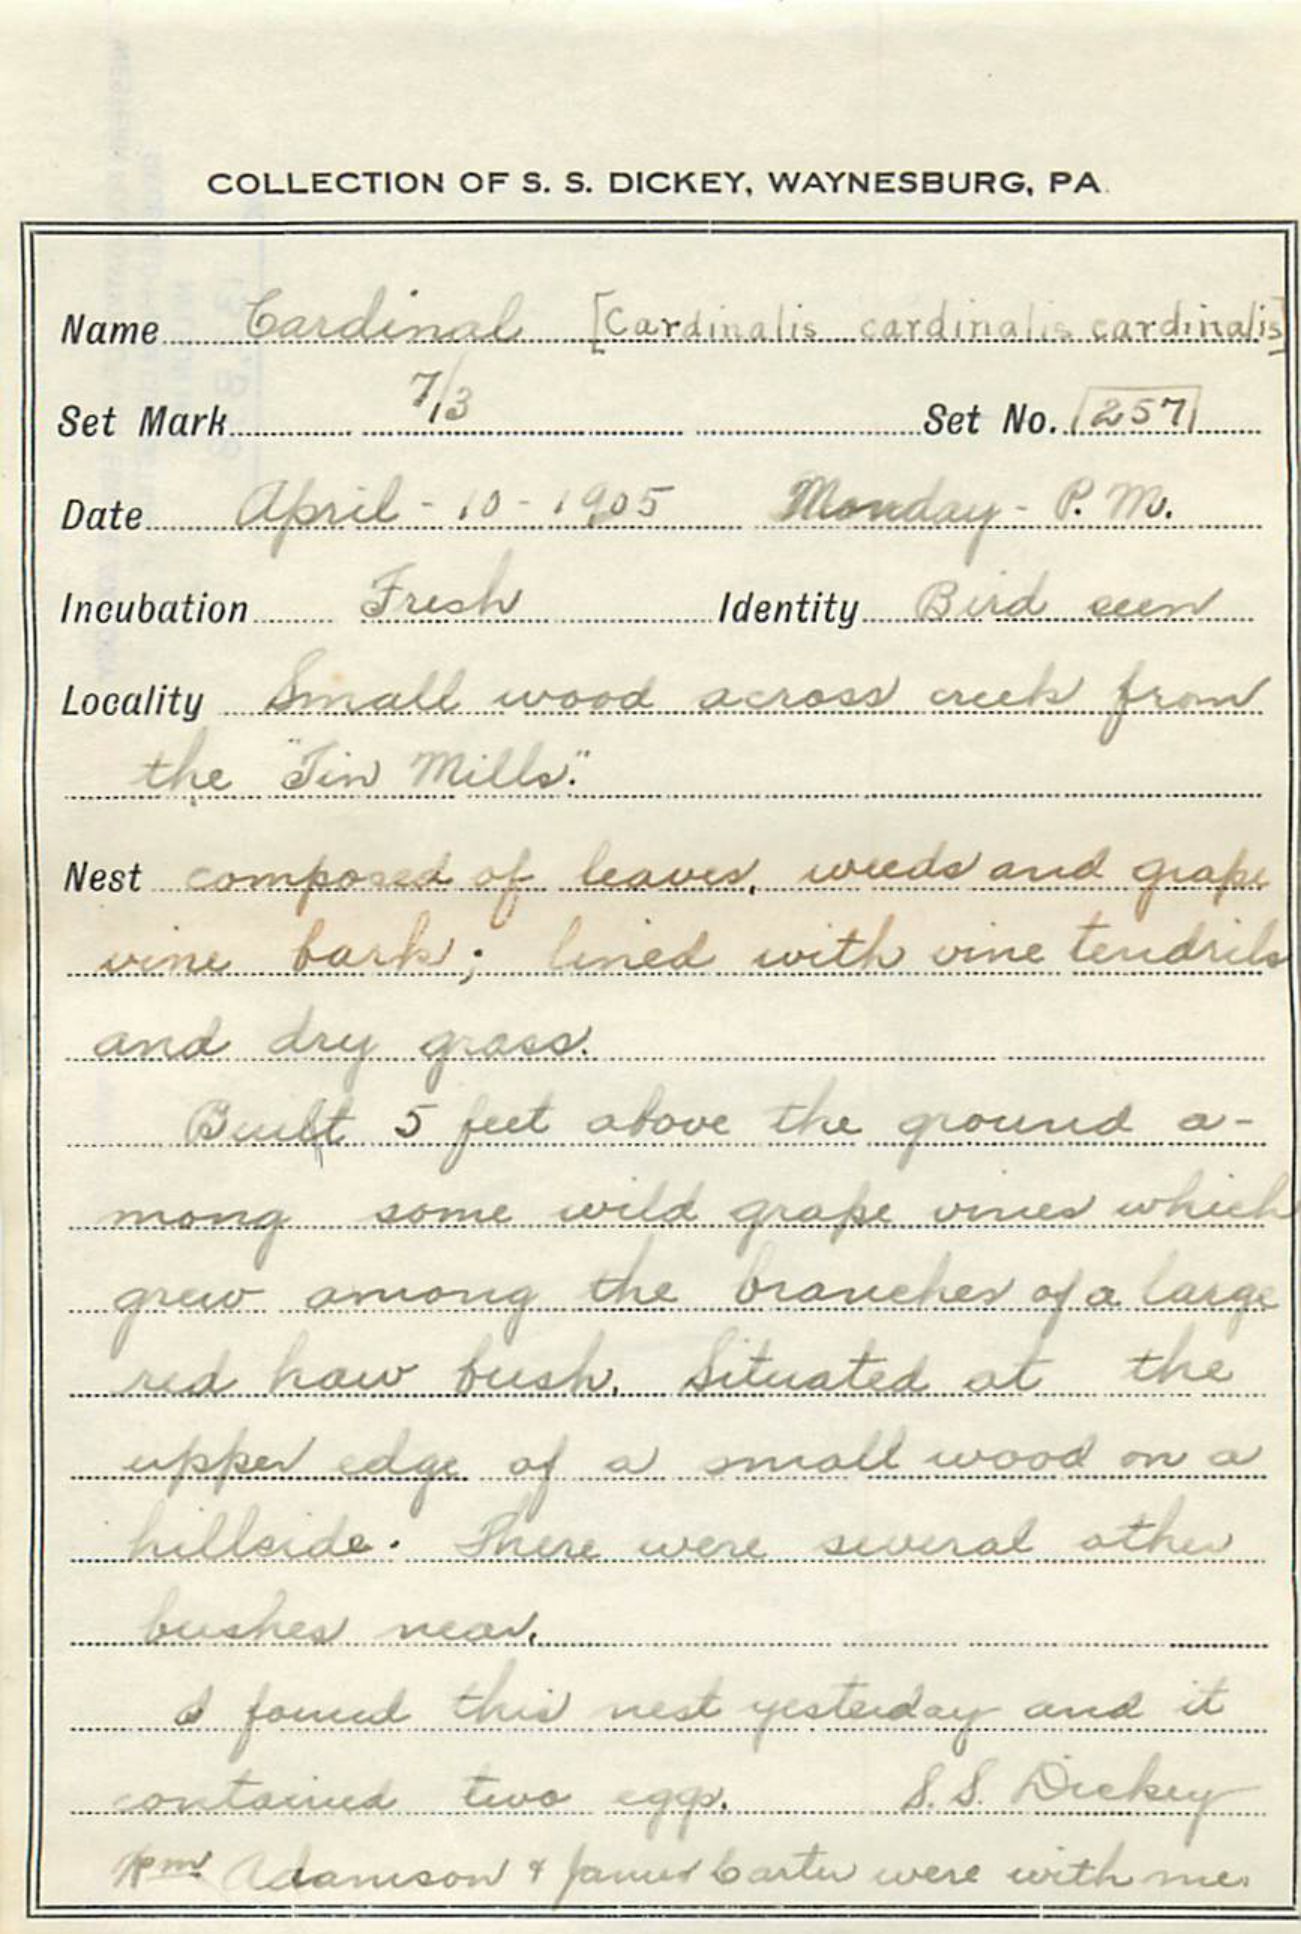 COLLECTION OF S. S. DICKEY, WAYNESBURG, PA.
Name Cardinal [Cardinalis cardinalis cardinalis]
Set Mark 7/3 Set No. 257
Date April - 10 - 1905 Monday - P. M.
Incubation Fresh Identity Bird seen
Locality Small wood across creek from
the "Tin Mills."
Nest composed of leaves, weeds and grape
vine bark; lined with vine tendrils
and dry grass.
Built 5 feet above the ground a-
mong some wild grape vines which
grew among the branches of a large
red haw bush. Situated at the
upper edge of a small wood on a
hillside. There were several other
bushes near.
I found this nest yesterday and it
contained two eggs. S. S. Dickey
Wm Adamson & James Carter were with me.